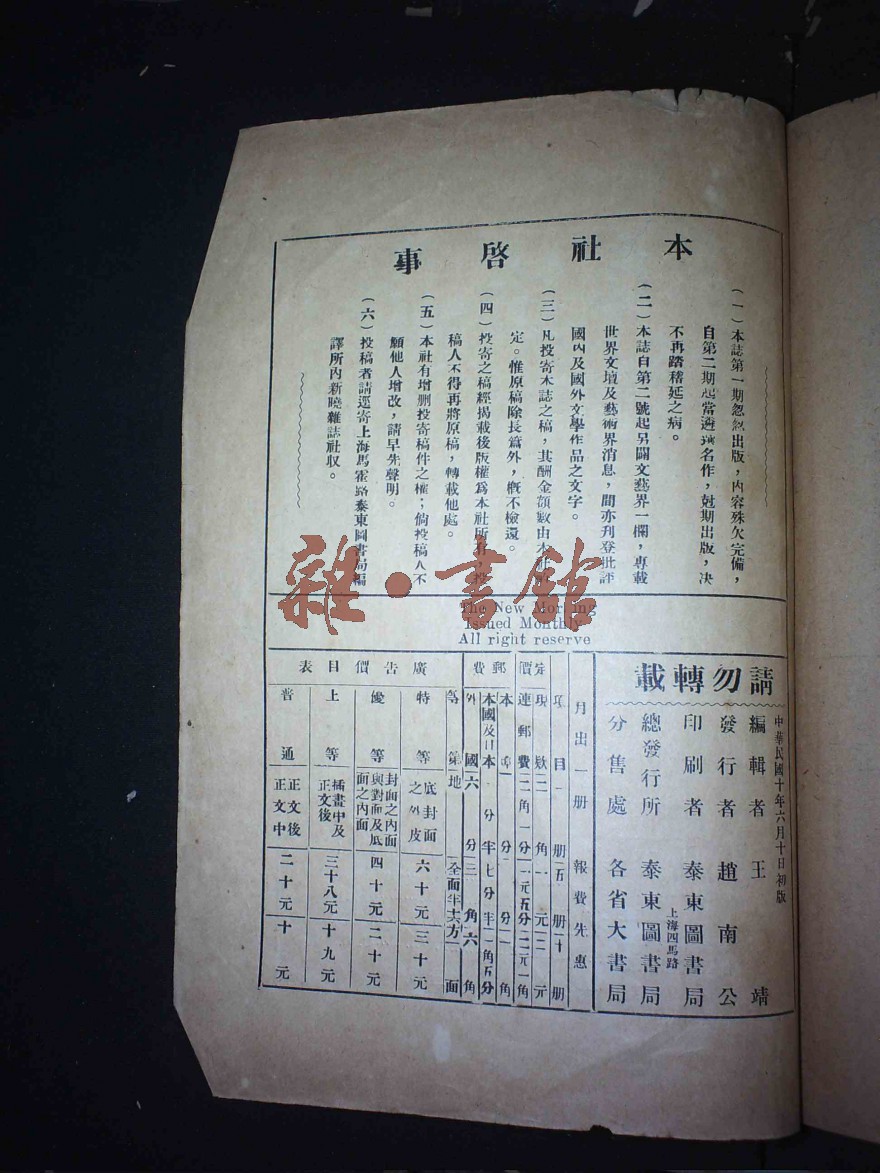 本社啓事
（一）本誌第一期忽忽出版，內容殊欠完備，
自第二期起當遴選名作，尅期出版，决
不再踏稽延之病。
（二）本誌自第二號起另闢文藝界一欄，專載
世界文壇及藝術界消息，間亦刋登批評
國內及國外文學作品之文字。
（三）凡投寄本誌之稿，其酬金額數由本社
定。惟原稿除長篇外，槪不檢還。
（四）投寄之稿經揭載後版權爲本社所有，投
稿人不得再將原稿，轉載他處。
（五）本社有增删投寄稿件之權；倘投稿人不
願他人增改，請早先聲明。
（六）投稿者請逕寄上海馬霍路泰東圖書局編
譯所內新曉雜誌社収。
雜·書館
The New Morning
Issued Monthly
All right reserve
請勿轉載
中華民國十年六月十日初版
編輯者 王靖
發行者 趙南公
印刷者 泰東圖書局
上海四馬路
總發行所 泰東圖書局
分售處 各省大書局
月出一册 報費先惠
定價
項目 一册 五册 十册
現欵 二角 一元 二元
連郵費 二角一分 一元五分 二元一角
郵費
本埠 一分
本國及日本 一分半 七分半 一角五分
外國 六分 三角 六角
廣告價目表
等第 地 全面 半面
特等 底封面之外皮 六十元 三十元
優等 封面之內面與對面及底面之內面 四十元 二十元
上等 插畫中及正文後 三十八元 十九元
普通 正文後正文中 二十元 十元